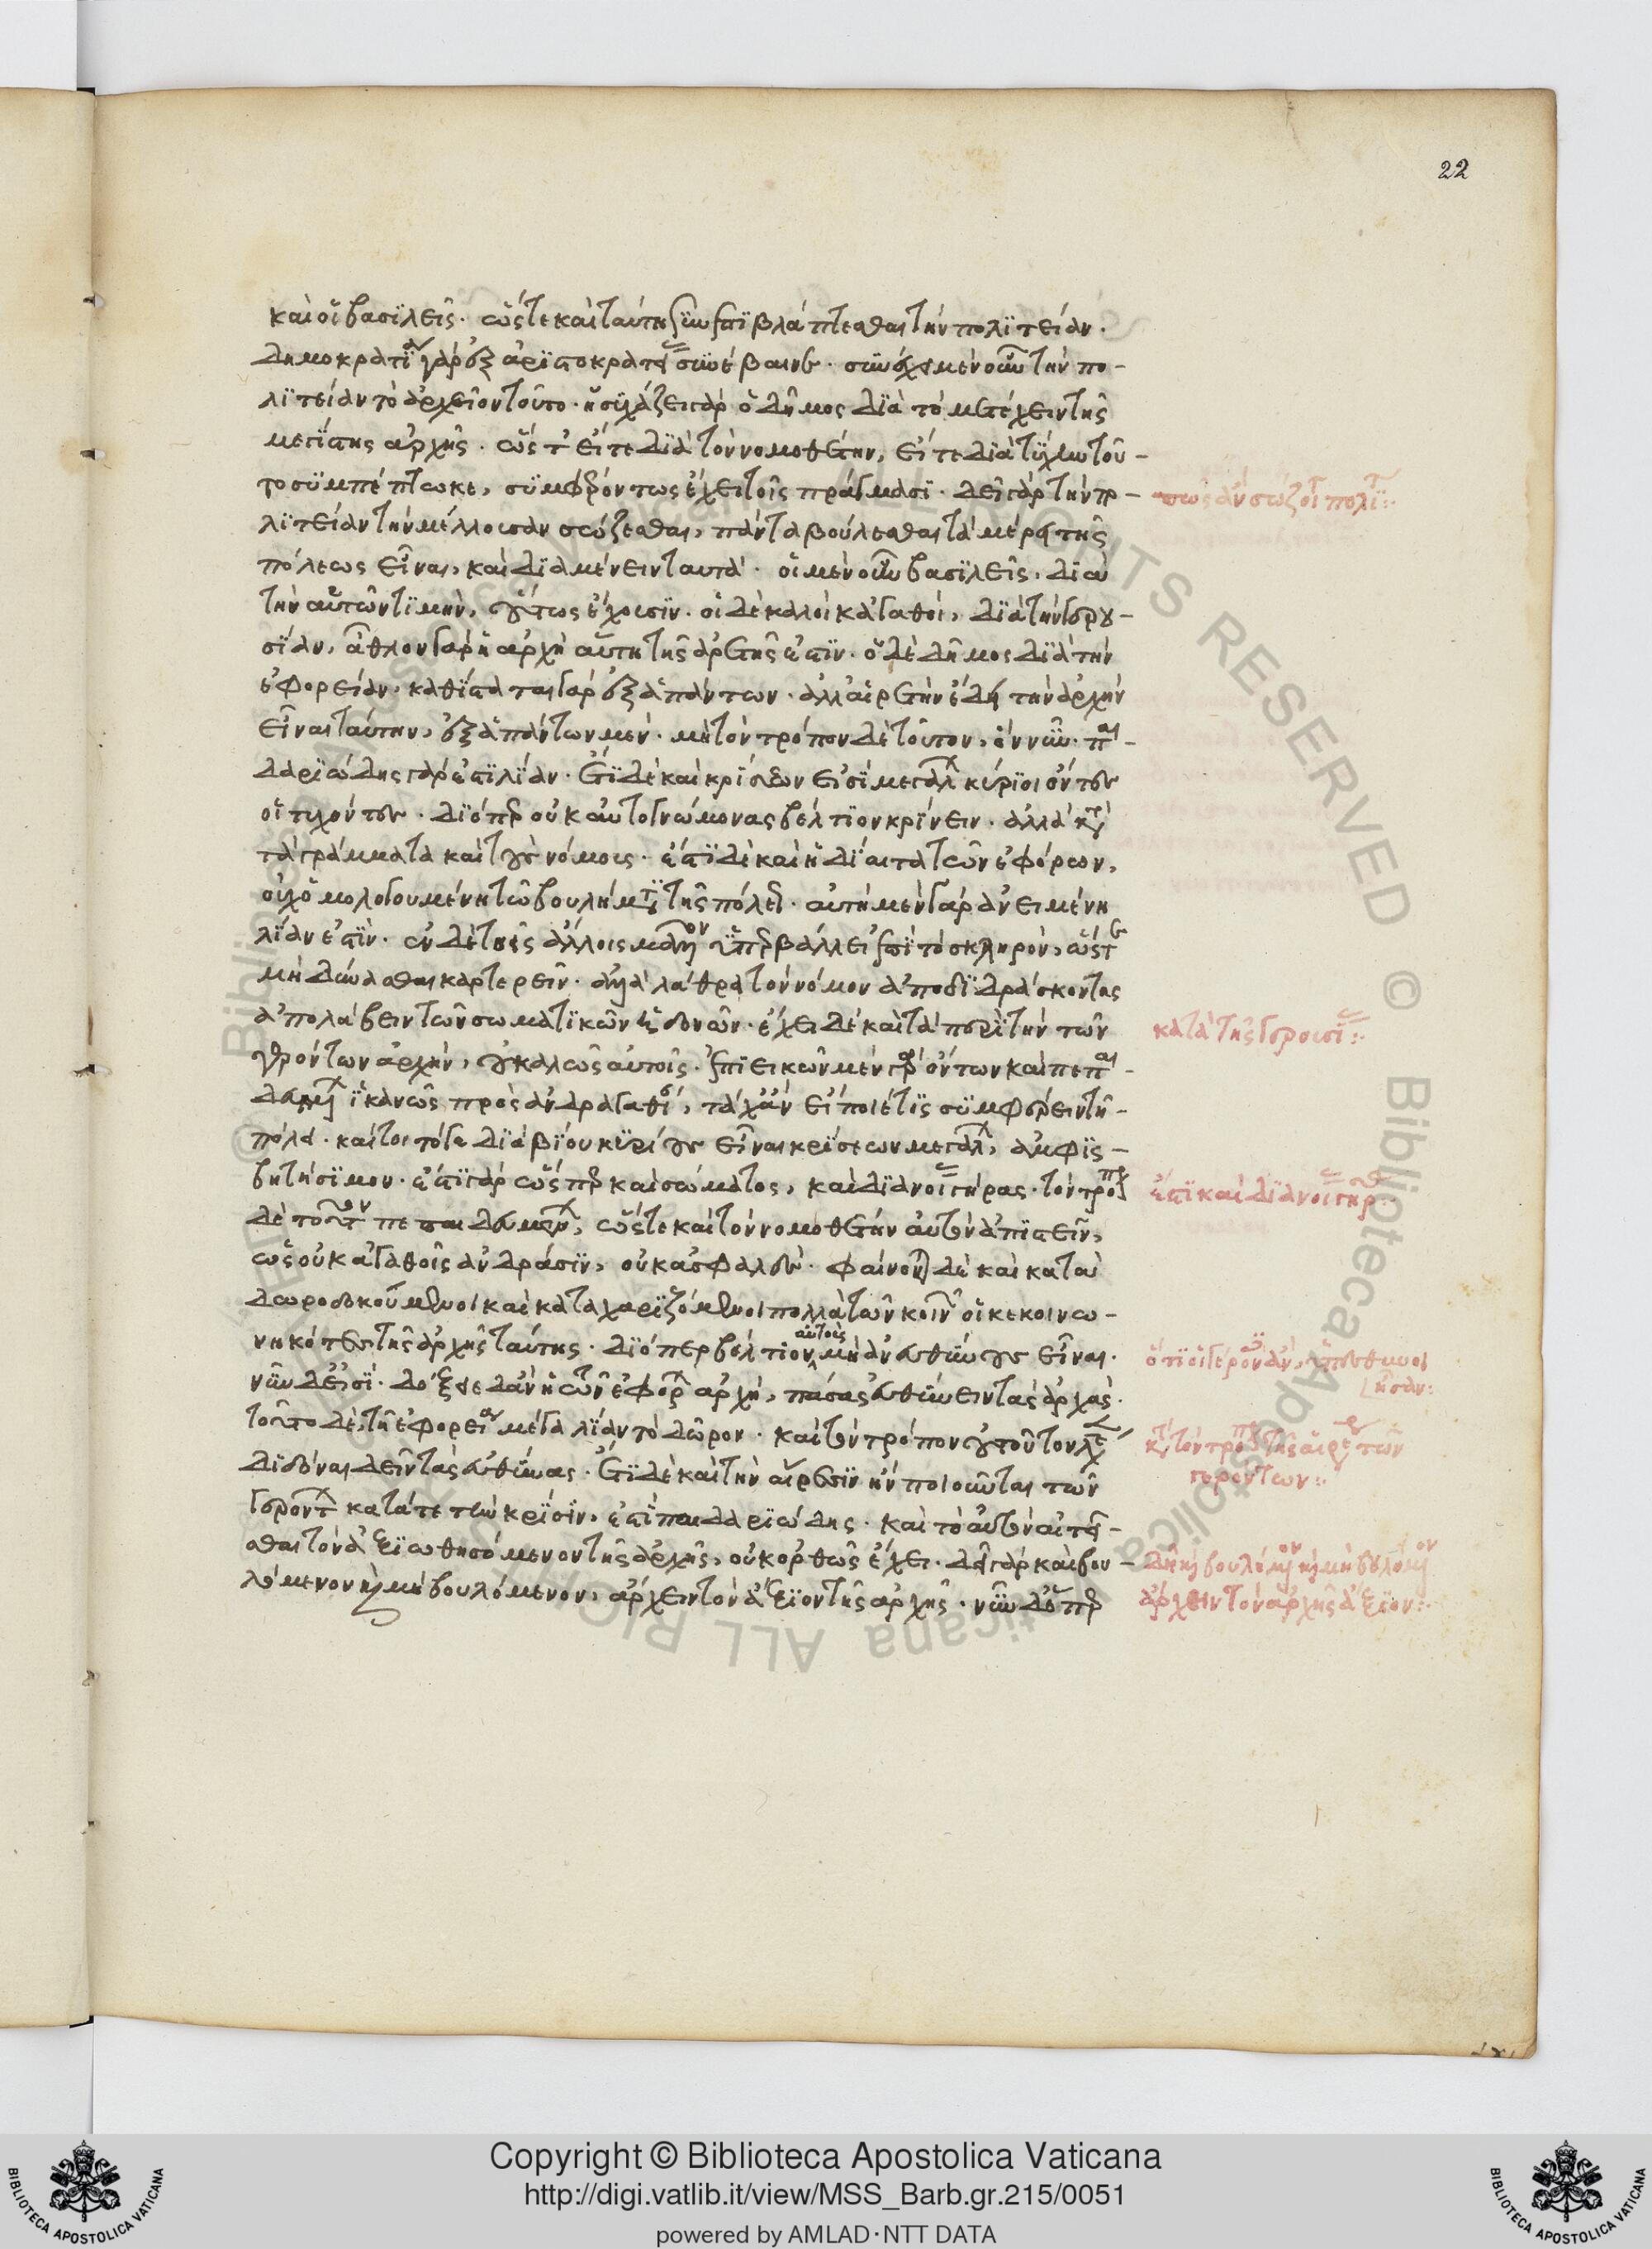 22
καὶ οἱ βασιλεῖς. ὥστε καὶ ταύτη συνεπιβλάπτεσθαι τὴν πολιτείαν.
δημοκρατία γὰρ ἐξ ἀριστοκρατίας συνέβαινε. συνέχει μὲν οὖν τὴν πο-
λιτείαν τὸ ἀρχεῖον τοῦτο. ἡσυχάζει γὰρ ὁ δῆμος διὰ τὸ μετέχειν τῆς
μεγίστης ἀρχῆς. ὥστ' εἴτε διὰ τὸν νομοθέτην, εἴτε διὰ τύχην τοῦ-
το συμπέπτωκε, συμφερόντως ἔχει τοῖς πράγμασι. δεῖ γὰρ τὴν πο-
πῶς ἂν σώζοιτο πολιτ:
λιτείαν τὴν μέλλουσαν σώζεσθαι, πάντα βούλεσθαι τὰ μέρη τῆς
πόλεως εἶναι, καὶ διαμένειν ταυτά. οἱ μὲν οὖν βασιλεῖς, διὰ
τὴν αὑτῶν τιμὴν, οὕτως ἔχουσιν. οἱ δὲ καλοὶ κἀγαθοὶ, διὰ τὴν γερου-
σίαν, ἆθλον γὰρ ἡ ἀρχὴ αὕτη τῆς ἀρετῆς ἐστίν. ὁ δὲ δῆμος διὰ τὴν
ἐφορείαν. καθίσταται γὰρ ἐξ ἁπάντων. ἀλλ' αἱρετὴν ἔδει τὴν ἀρχὴν
εἶναι ταύτην, ἐξ ἁπάντων μὲν. μὴ τὸν τρόπον δὲ τοῦτον, ὃν νῦν. παι-
δαριώδης γάρ ἐστι λίαν. ἔτι δὲ καὶ κρίσεων εἰσὶ μεγάλων κύριοι ὄντες
οἱ τυχόντες. διόπερ οὐκ αὐτογνώμονας βέλτιον κρίνειν. ἀλλὰ κατὰ
τὰ γράμματα καὶ τοὺς νόμους. ἔστι δὲ καὶ ἡ δίαιτα τῶν ἐφόρων,
οὐχ ὁμολογουμένη τῷ βουλήματι τῆς πόλεως. αὐτὴ μὲν γὰρ ἀνειμένη
λίαν ἐστίν. ἐν δὲ τοῖς ἄλλοις μᾶλλον ὑπερβάλλει ἐπὶ τὸ σκληρόν, ὥστε
μὴ δύνασθαι καρτερεῖν. ἀλλὰ λάθρα τὸν νόμον ἀποδιδράσκοντας
ἀπολαύειν τῶν σωματικῶν ἡδονῶν. ἔχει δὲ καὶ τὰ περὶ τὴν τῶν
κατὰ τῆς γερουσί:
γερόντων ἀρχὴν, οὐ καλῶς αὐτοῖς. ἐπιεικῶν μὲν γὰρ ὄντων καὶ πεπαι-
δευμένων ἱκανῶς πρὸς ἀνδραγαθίαν, τάχ' ἂν εἴποιέ τις συμφέρειν τῇ
πόλει. καίτοι τό γε διὰ βίου κυρίους εἶναι κρίσεων μεγάλων, ἀμφισ-
βητήσιμον. ἔστι γὰρ ὥσπερ καὶ σώματος, καὶ διανοίας γῆρας. τὸν τρόπον
ἔστι καὶ διανοίας γῆρας:
δὲ τοῦτον πεπαιδευμένων, ὥστε καὶ τὸν νομοθέτην αὐτὸν ἀπιστεῖν,
ὡς οὐκ ἀγαθοῖς ἀνδράσιν, οὐκ ἀσφαλές. φαίνονται δὲ καὶ κατα
δωροδοκούμενοι καὶ καταχαριζόμενοι πολλὰ τῶν κοινῶν οἱ κεκοινω-
νηκότες τῆς ἀρχῆς ταύτης. διόπερ βέλτιον αὐτοὺς μὴ ἀνευθύνους εἶναι.
ὅτι οἱ γέροντες ἀνυπεύθυνοι
ἦσαν:
νῦν δ' εἰσί. δόξειε δ' ἂν ἡ τῶν ἐφόρων ἀρχὴ, πάσας εὐθύνειν τὰς ἀρχάς.
τοῦτο δὲ, τῇ ἐφορεία μέγα λίαν τὸ δῶρον. καὶ τὸν τρόπον οὐ τοῦτον λέγομεν
κατὰ τὸν τρόπον τῆς αἱρέσεως τῶν
γερόντων:
διδόναι δεῖν τὰς εὐθύνας. ἔτι δὲ καὶ τὴν αἵρεσιν ἣν ποιοῦνται τῶν
γερόντων κατά τε τὴν κρίσιν, ἐστὶ παιδαριώδης. καὶ τὸ αὐτὸν αἰτεῖ-
σθαι τὸν ἀξιωθησόμενον τῆς ἀρχῆς, οὐκ ὀρθῶς ἔχει. δεῖ γὰρ καὶ βου-
δεῖ καὶ βουλόμενον καὶ μὴ βουλόμενον
λόμενον καὶ μὴ βουλόμενον, ἄρχειν τὸν ἄξιον τῆς ἀρχῆς. νῦν δ' ὅπερ
ἄρχειν τὸν ἀρχῆς ἄξιον:
Copyright © Biblioteca Apostolica Vaticana
http://digi.vatlib.it/view/MSS_Barb.gr.215/0051
powered by AMLAD·NTT DATA